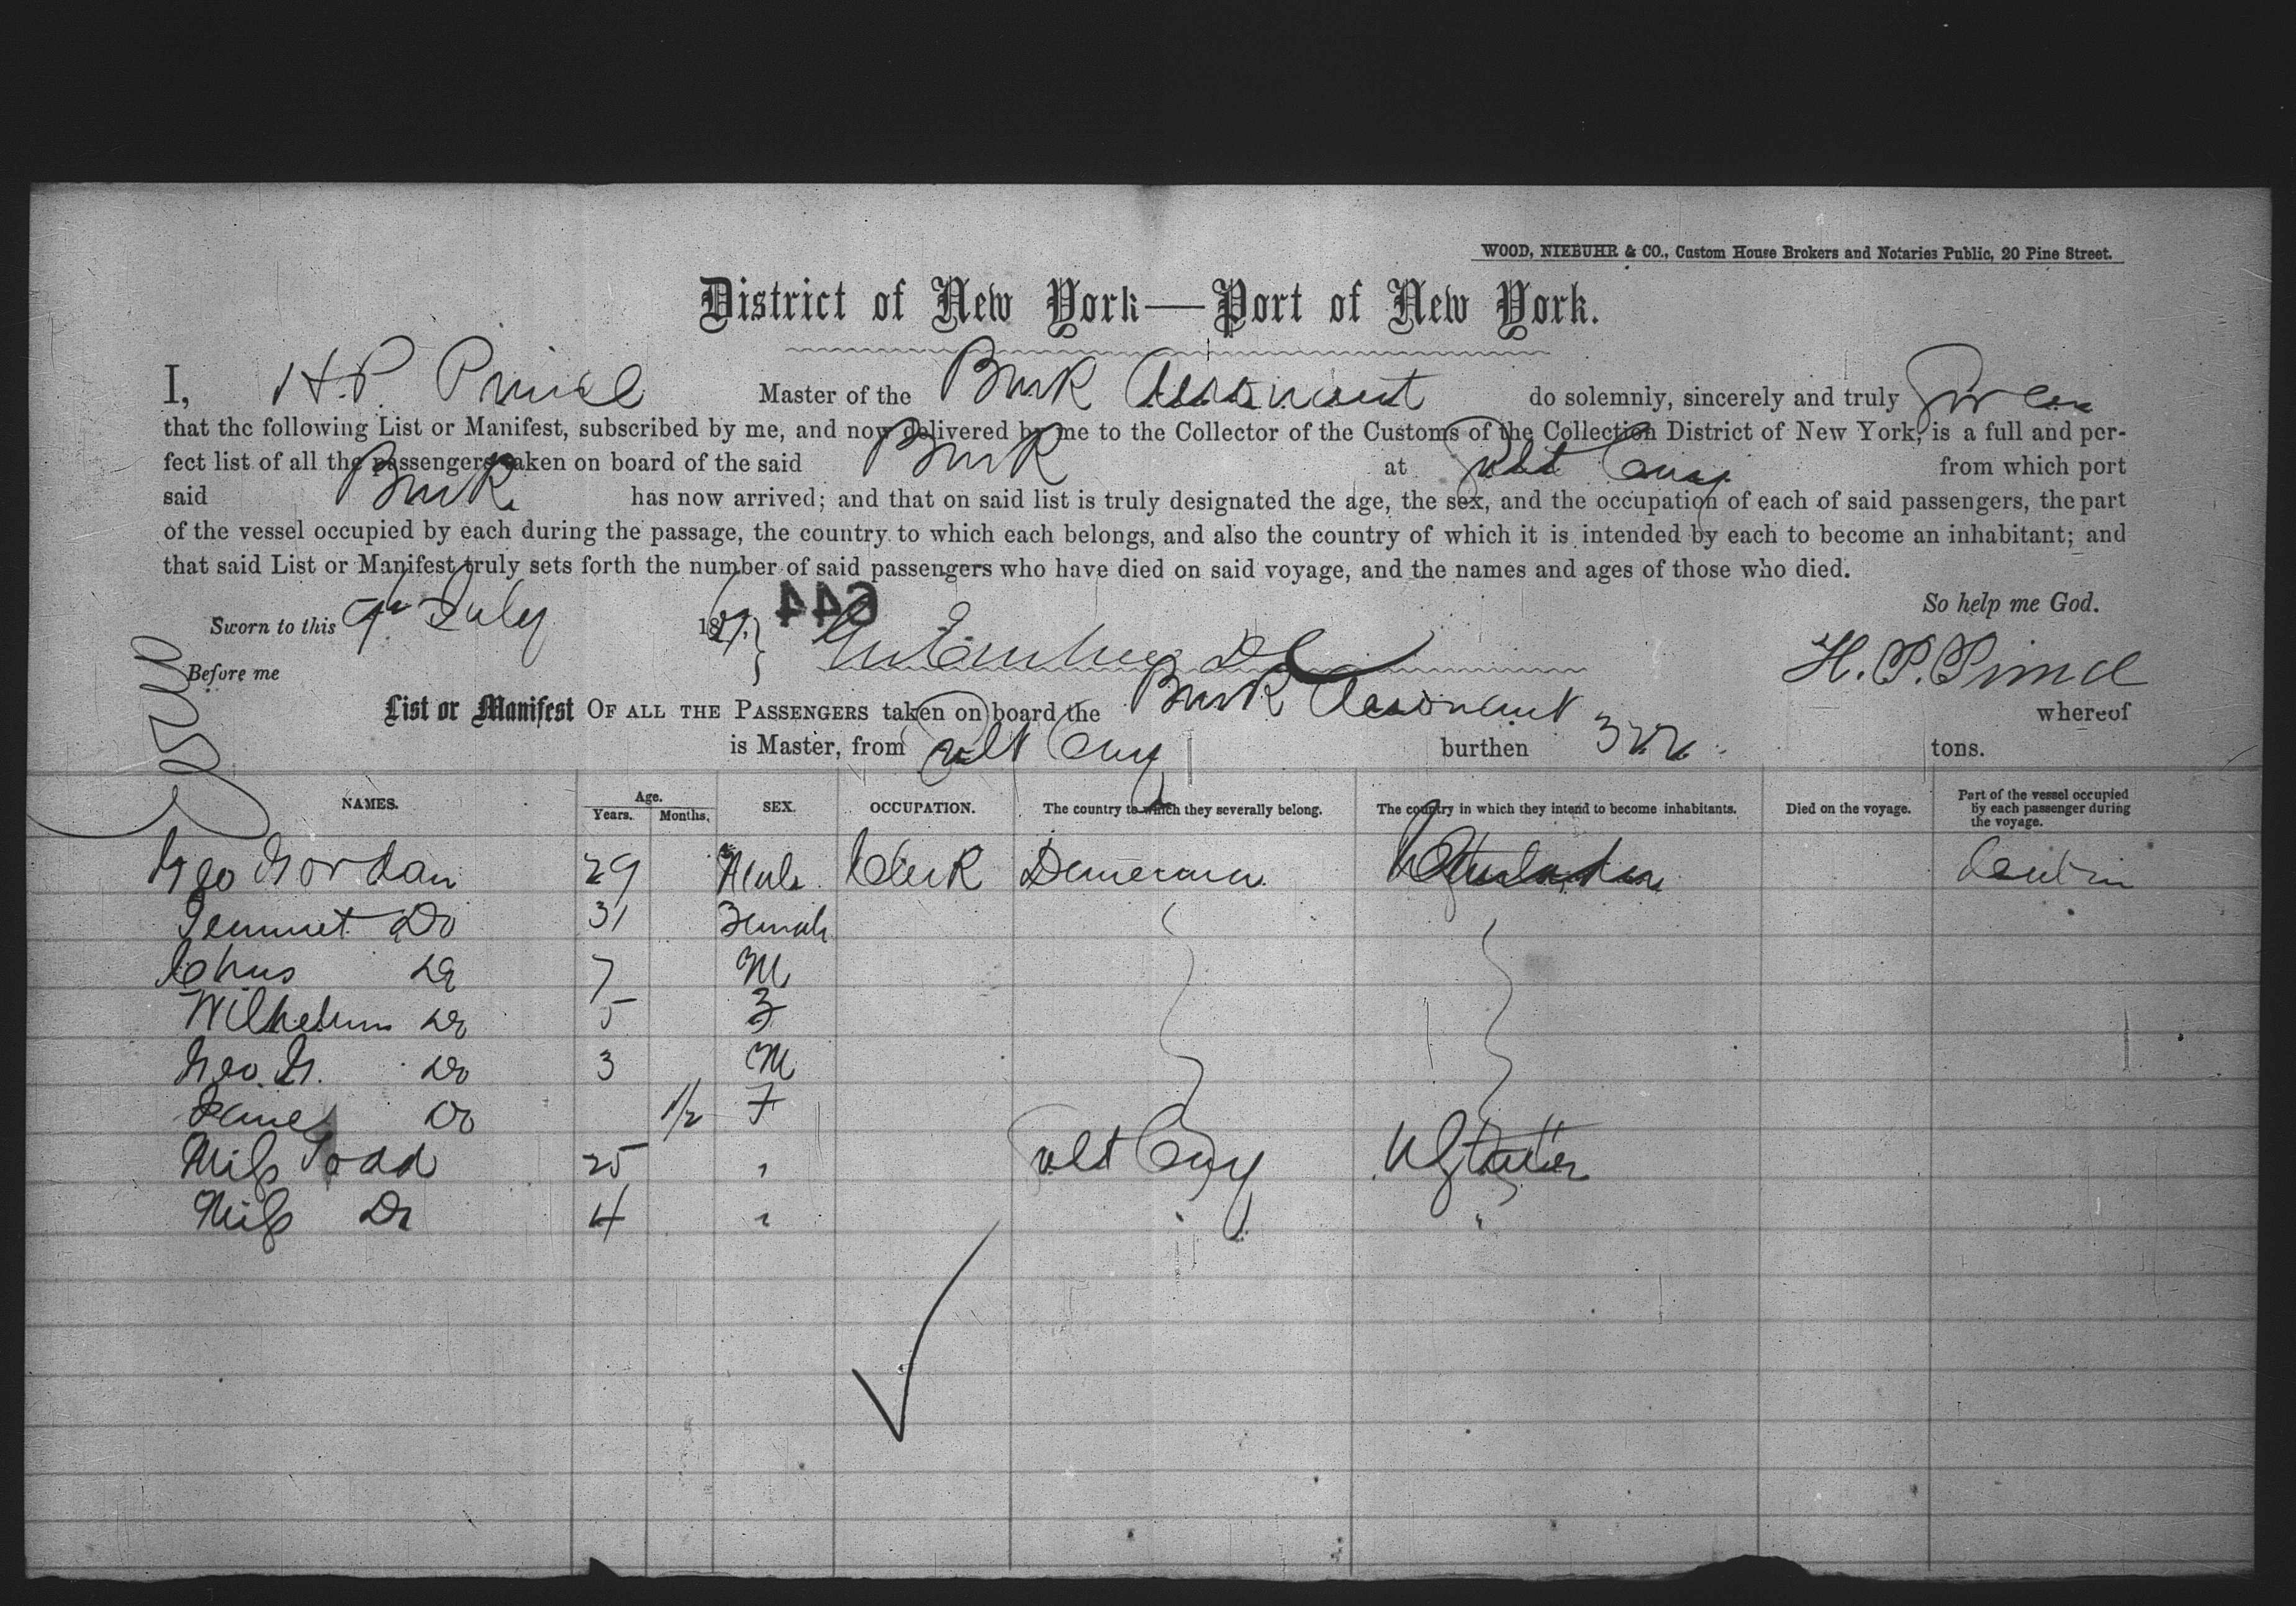 WOOD, NIEBUHR & CO., Custom House Brokers and Notaries Public, 20 Pine Street.
District of New York—Port of New York.
I, H. P. Prince Master of the Bark Aeronaut do solemnly, sincerely and truly Swear
that the following List or Manifest, subscribed by me, and now delivered by me to the Collector of the Customs of the Collection District of New York, is a full and per-
fect list of all the passengers taken on board of the said Bark at Salt Cay from which port
said Bark has now arrived; and that on said list is truly designated the age, the sex, and the occupation of each of said passengers, the part
of the vessel occupied by each during the passage, the country to which each belongs, and also the country of which it is intended by each to become an inhabitant; and
that said List or Manifest truly sets forth the number of said passengers who have died on said voyage, and the names and ages of those who died.
So help me God.
Sworn to this 9th July 18 644
Before me
H. P. Prince
List or Manifest OF ALL THE PASSENGERS taken on board the Bark Aeronaut whereof
is Master, from Salt Cay burthen 322 tons.
NAMES. Age. Years. Months. SEX. OCCUPATION. The country to which they severally belong. The country in which they intend to become inhabitants. Died on the voyage. Part of the vessel occupied by each passenger during the voyage.
Geo Gordan 29 Male Clerk Demerara Cabin
Do 31 Female
Chas Do 7 M
Wilhelm Do 5 F
Geo. G. Do 3 M
Do 1/2 F
Miss Todd 25 " Salt Cay U States
Miss Do 4 " " "